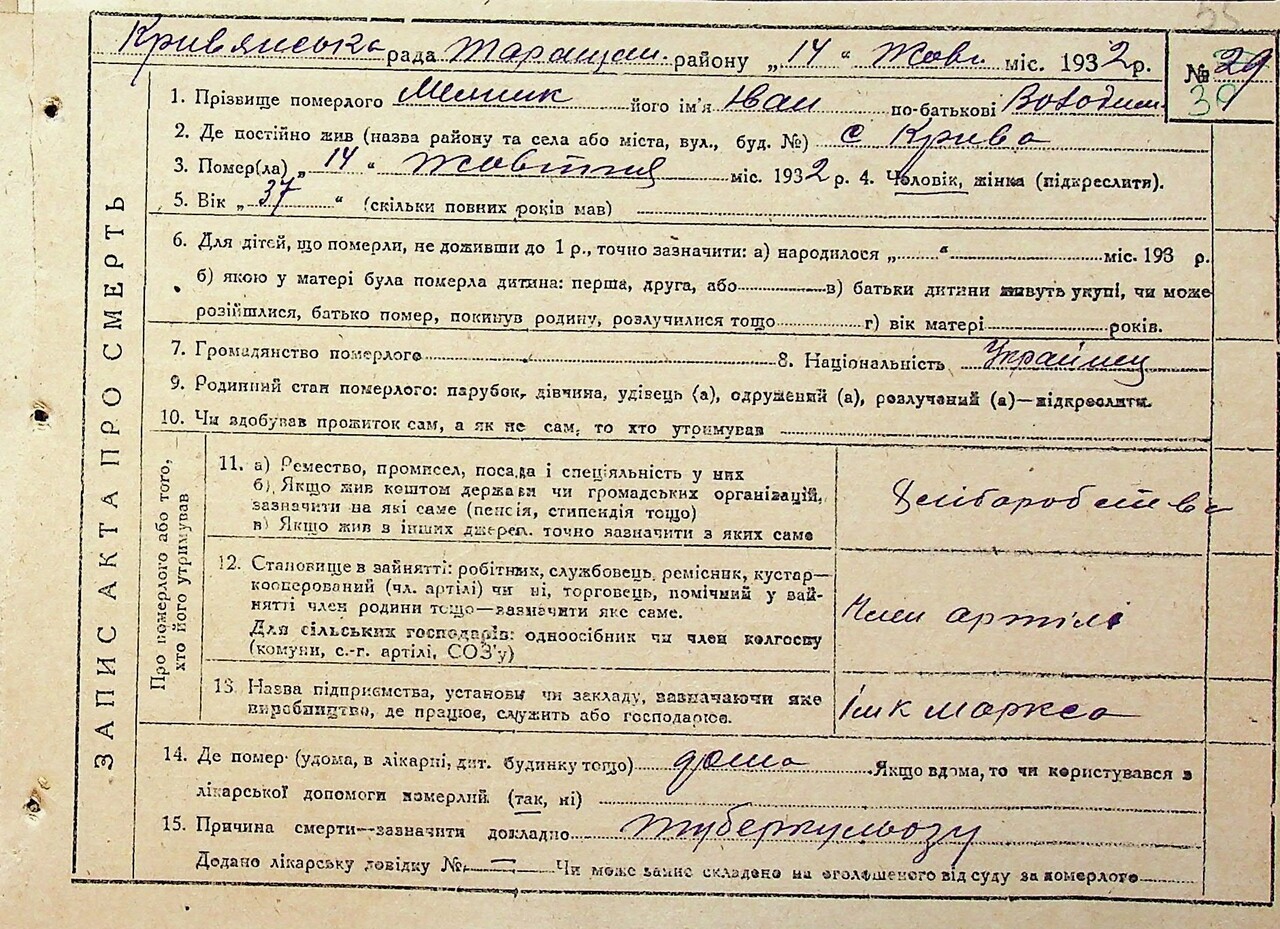 Кривянська рада Таращан. району „14“ Жовт. міс. 1932 р. № 29
39
1. Прізвище померлого Мельник його ім'я Іван по-батькові Володим.
2. Де постійно жив (назва району та села або міста, вул., буд. №) с Крива
3. Помер(ла) „14“ Жовтня міс. 1932 р. 4. Чоловік, жінка (підкреслити).
5. Вік „37“ (скільки повних років мав)
6. Для дітей, що померли, не доживши до 1 р., точно зазначити: а) народилося „ “ міс. 193 р.
б) якою у матері була померла дитина: перша, друга, або в) батьки дитини живуть укупі, чи може
розійшлися, батько помер, покинув родину, розлучилися тощо г) вік матері років.
7. Громадянство померлого 8. Національність Українец
9. Родинний стан померлого: парубок, дівчина, удівець (а), одружений (а), розлучений (а)—підкреслити.
10. Чи здобував прожиток сам, а як не сам, то хто утримував
ЗАПИС АКТА ПРО СМЕРТЬ
Про померлого або того,
хто його утримував
11. а) Ремество, промисел, посада і спеціяльність у них
б) Якщо жив коштом держави чи громадських організацій,
зазначити на які саме (пенсія, стипендія тощо)
в) Якщо жив з інших джерел, точно зазначити з яких саме
Хліборобство
12. Становище в зайнятті: робітник, службовець, ремісник, кустар—
кооперований (чл. артілі) чи ні, торговець, помічний у зай-
нятті член родини тощо—зазначити яке саме.
Для сільських господарів: одноосібник чи член колгоспу
(комуни, с.-г. артілі, СОЗ'у)
Член артілі
13. Назва підприємства, установи чи закладу, зазначаючи яке
виробництво, де працює, служить або господарює.
Ім К Маркса
14. Де помер (удома, в лікарні, дит. будинку тощо) дома Якщо вдома, то чи користувався з
лікарської допомоги померлий (так, ні)
15. Причина смерти—зазначити докладно туберкульозу
Додано лікарську довідку № — Чи може запис складено на оголошеного від суду за померлого